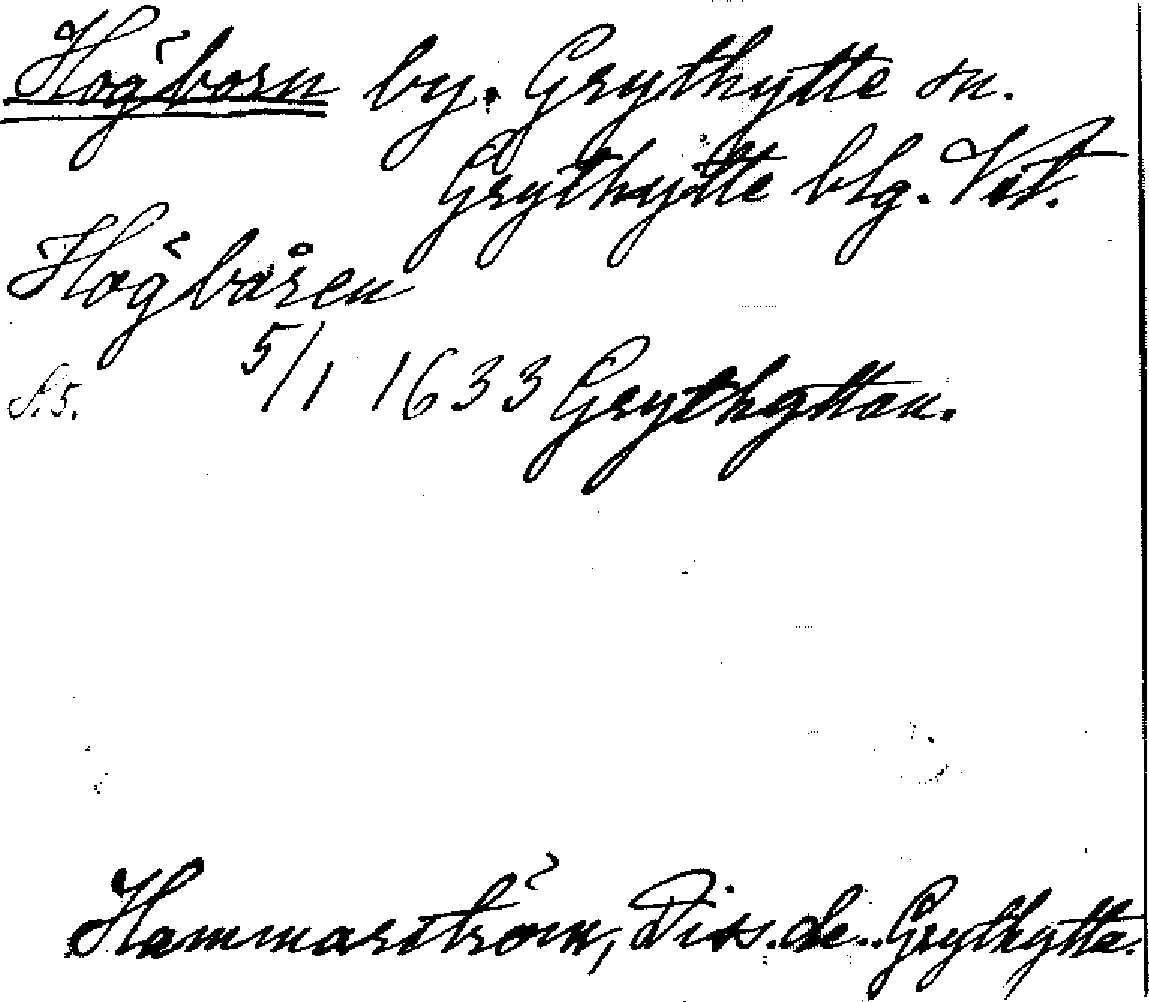 Högborn by. Grythytte sn.
Grythytte blg. Vst.
Högbåren
S. 5. 5/1 1633 Grythyttan.
Hammarström, Diss. de.. Grythytta.